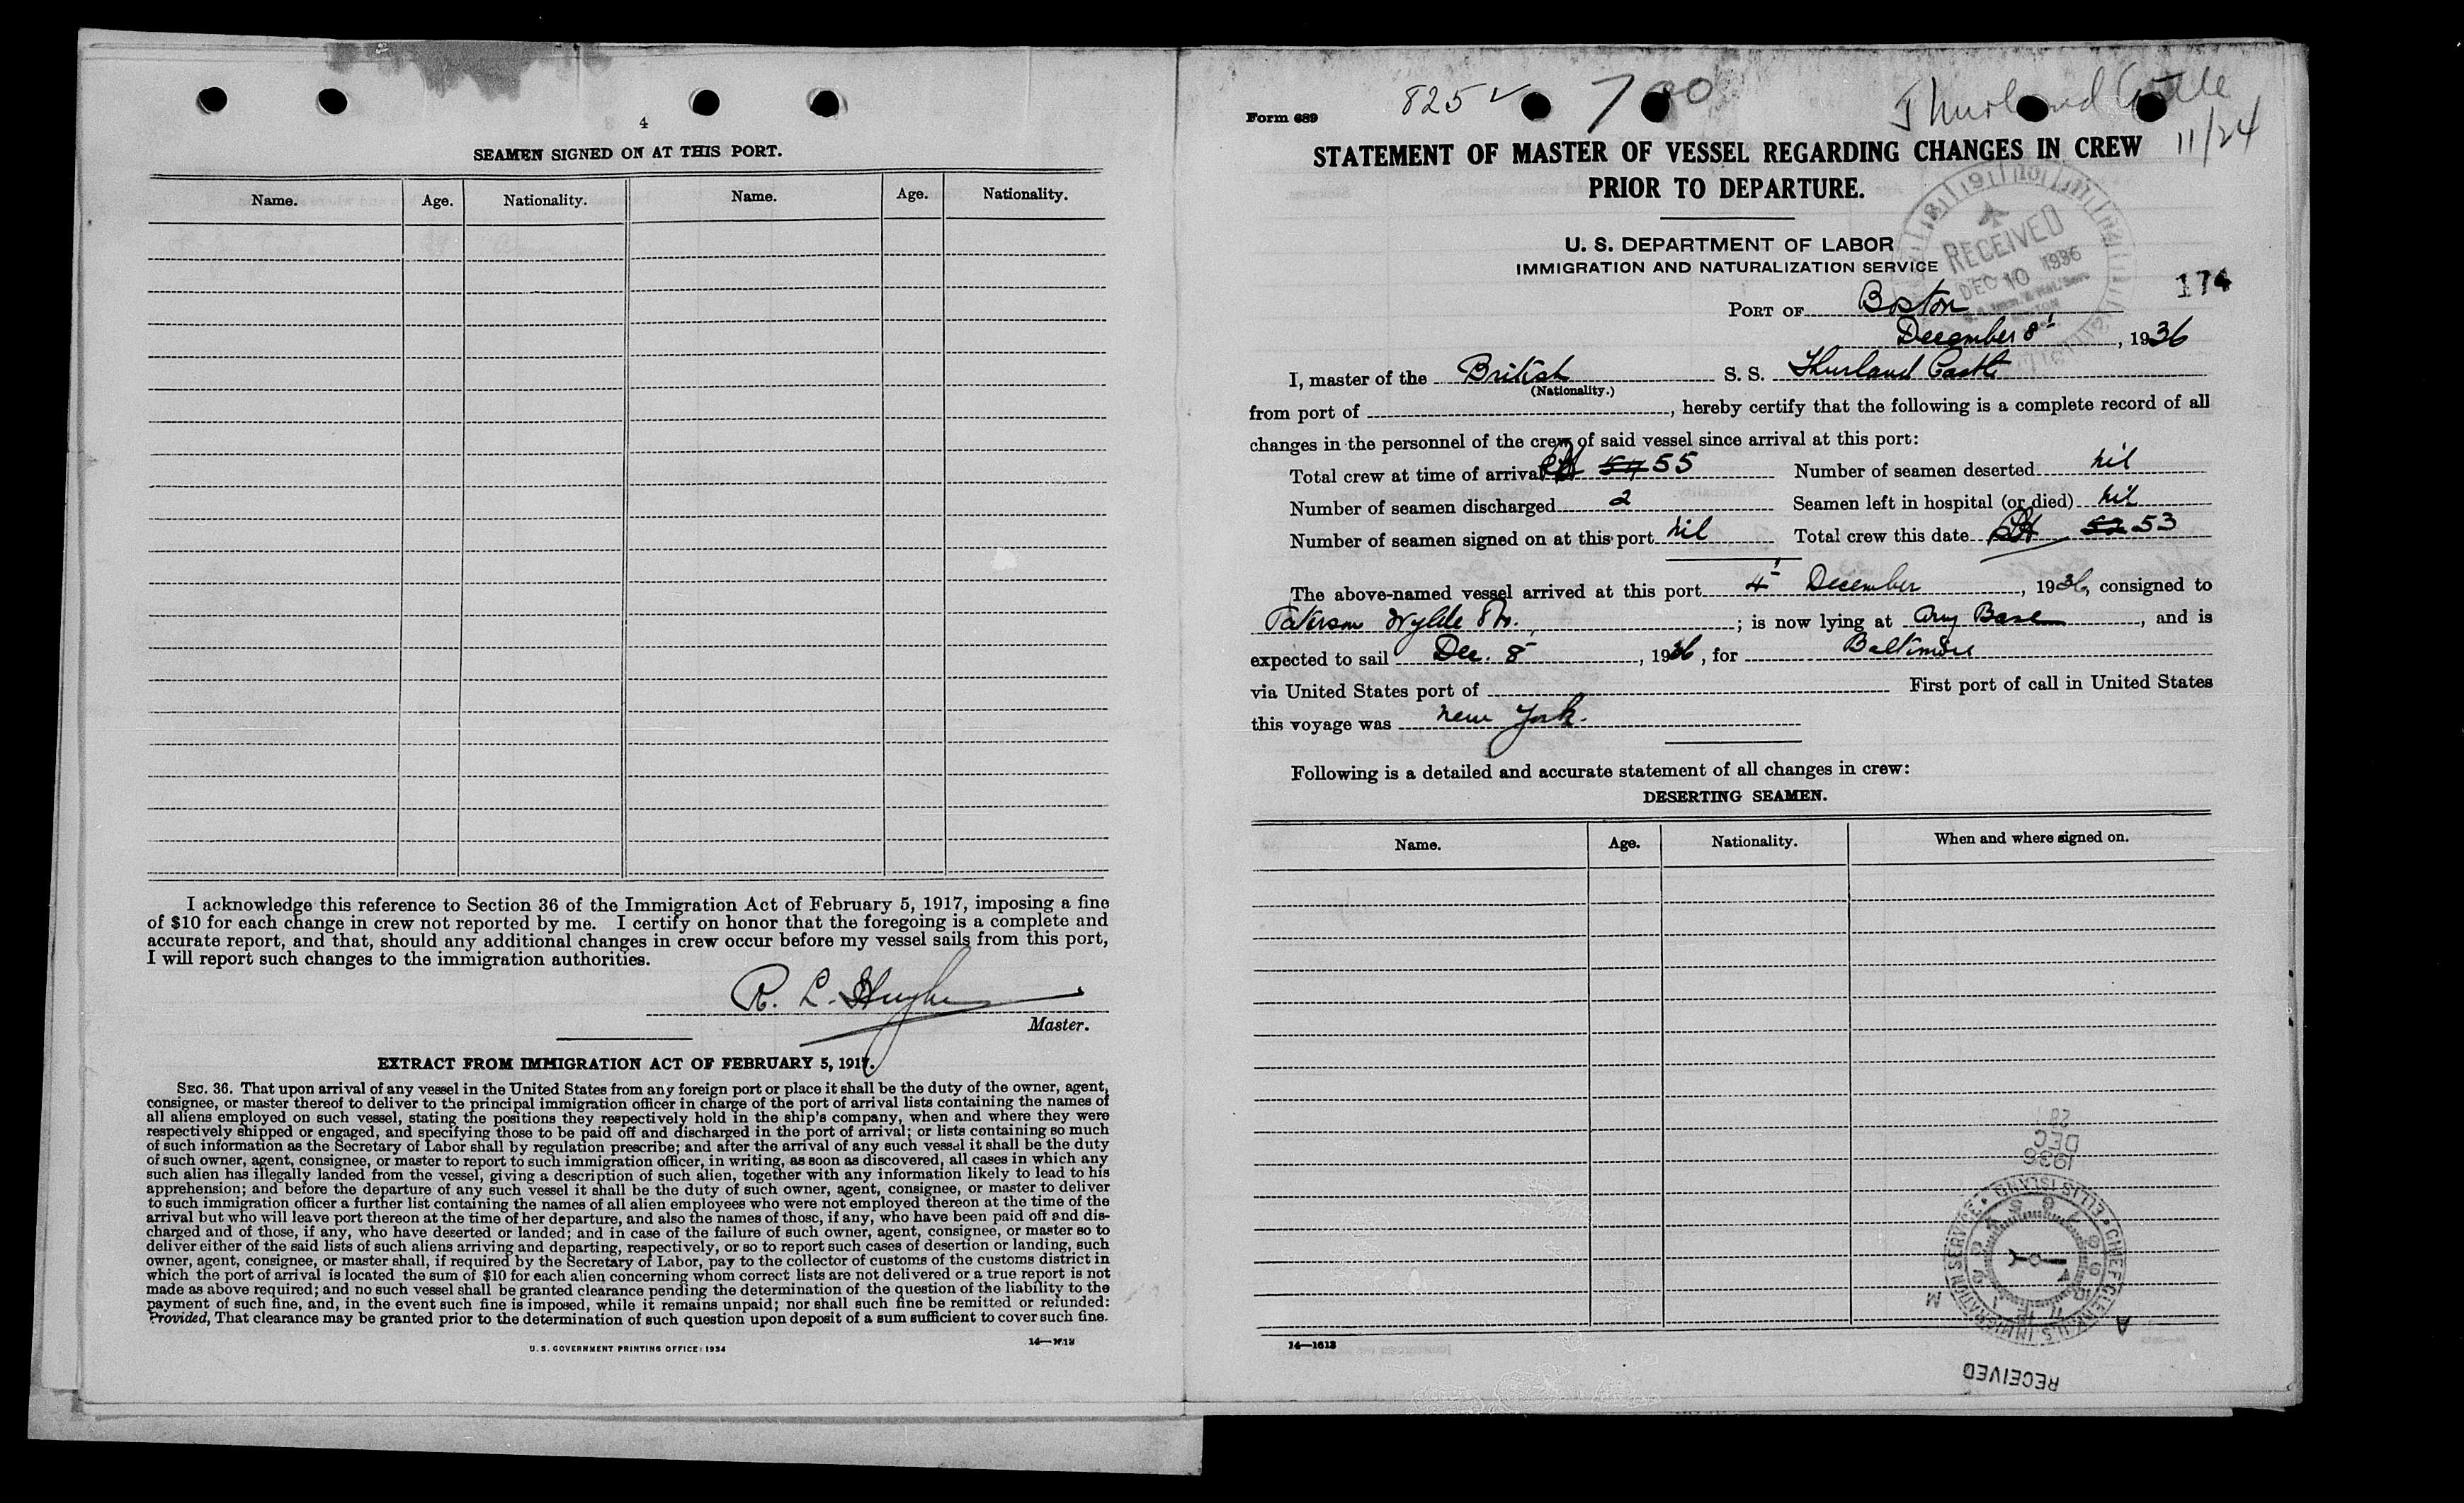 4
SEAMEN SIGNED ON AT THIS PORT.
Name. Age. Nationality. Name. Age. Nationality.
I acknowledge this reference to Section 36 of the Immigration Act of February 5, 1917, imposing a fine
of $10 for each change in crew not reported by me. I certify on honor that the foregoing is a complete and
accurate report, and that, should any additional changes in crew occur before my vessel sails from this port,
I will report such changes to the immigration authorities.
R. L. Hughes
Master.
EXTRACT FROM IMMIGRATION ACT OF FEBRUARY 5, 1917.
SEC. 36. That upon arrival of any vessel in the United States from any foreign port or place it shall be the duty of the owner, agent,
consignee, or master thereof to deliver to the principal immigration officer in charge of the port of arrival lists containing the names of
all aliens employed on such vessel, stating the positions they respectively hold in the ship's company, when and where they were
respectively shipped or engaged, and specifying those to be paid off and discharged in the port of arrival; or lists containing so much
of such information as the Secretary of Labor shall by regulation prescribe; and after the arrival of any such vessel it shall be the duty
of such owner, agent, consignee, or master to report to such immigration officer, in writing, as soon as discovered, all cases in which any
such alien has illegally landed from the vessel, giving a description of such alien, together with any information likely to lead to his
apprehension; and before the departure of any such vessel it shall be the duty of such owner, agent, consignee, or master to deliver
to such immigration officer a further list containing the names of all alien employees who were not employed thereon at the time of the
arrival but who will leave port thereon at the time of her departure, and also the names of those, if any, who have been paid off and dis-
charged and of those, if any, who have deserted or landed; and in case of the failure of such owner, agent, consignee, or master so to
deliver either of the said lists of such aliens arriving and departing, respectively, or so to report such cases of desertion or landing, such
owner, agent, consignee, or master shall, if required by the Secretary of Labor, pay to the collector of customs of the customs district in
which the port of arrival is located the sum of $10 for each alien concerning whom correct lists are not delivered or a true report is not
made as above required; and no such vessel shall be granted clearance pending the determination of the question of the liability to the
payment of such fine, and, in the event such fine is imposed, while it remains unpaid; nor shall such fine be remitted or refunded:
Provided, That clearance may be granted prior to the determination of such question upon deposit of a sum sufficient to cover such fine.
U. S. GOVERNMENT PRINTING OFFICE: 1934 14—1613
825 Thurland Castle
11/24
Form 689
STATEMENT OF MASTER OF VESSEL REGARDING CHANGES IN CREW
PRIOR TO DEPARTURE.
U. S. DEPARTMENT OF LABOR
IMMIGRATION AND NATURALIZATION SERVICE
RECEIVED
DEC 10 1936
174
PORT OF Boston
December 8, 1936
I, master of the British S. S. Thurland Castle
(Nationality.)
from port of , hereby certify that the following is a complete record of all
changes in the personnel of the crew of said vessel since arrival at this port:
Total crew at time of arrival 54 55 Number of seamen deserted nil
Number of seamen discharged 2 Seamen left in hospital (or died) nil
Number of seamen signed on at this port nil Total crew this date 52 53
The above-named vessel arrived at this port 4 December, 1936, consigned to
Paterson Wylde ; is now lying at Army Base, and is
expected to sail Dec. 8, 1936, for Baltimore
via United States port of First port of call in United States
this voyage was New York.
Following is a detailed and accurate statement of all changes in crew:
DESERTING SEAMEN.
Name. Age. Nationality. When and where signed on.
28
DEC
1936
CHIEF CLERK U.S. IMMIGRATION SERVICE • ELLIS ISLAND
RECEIVED
14—1613